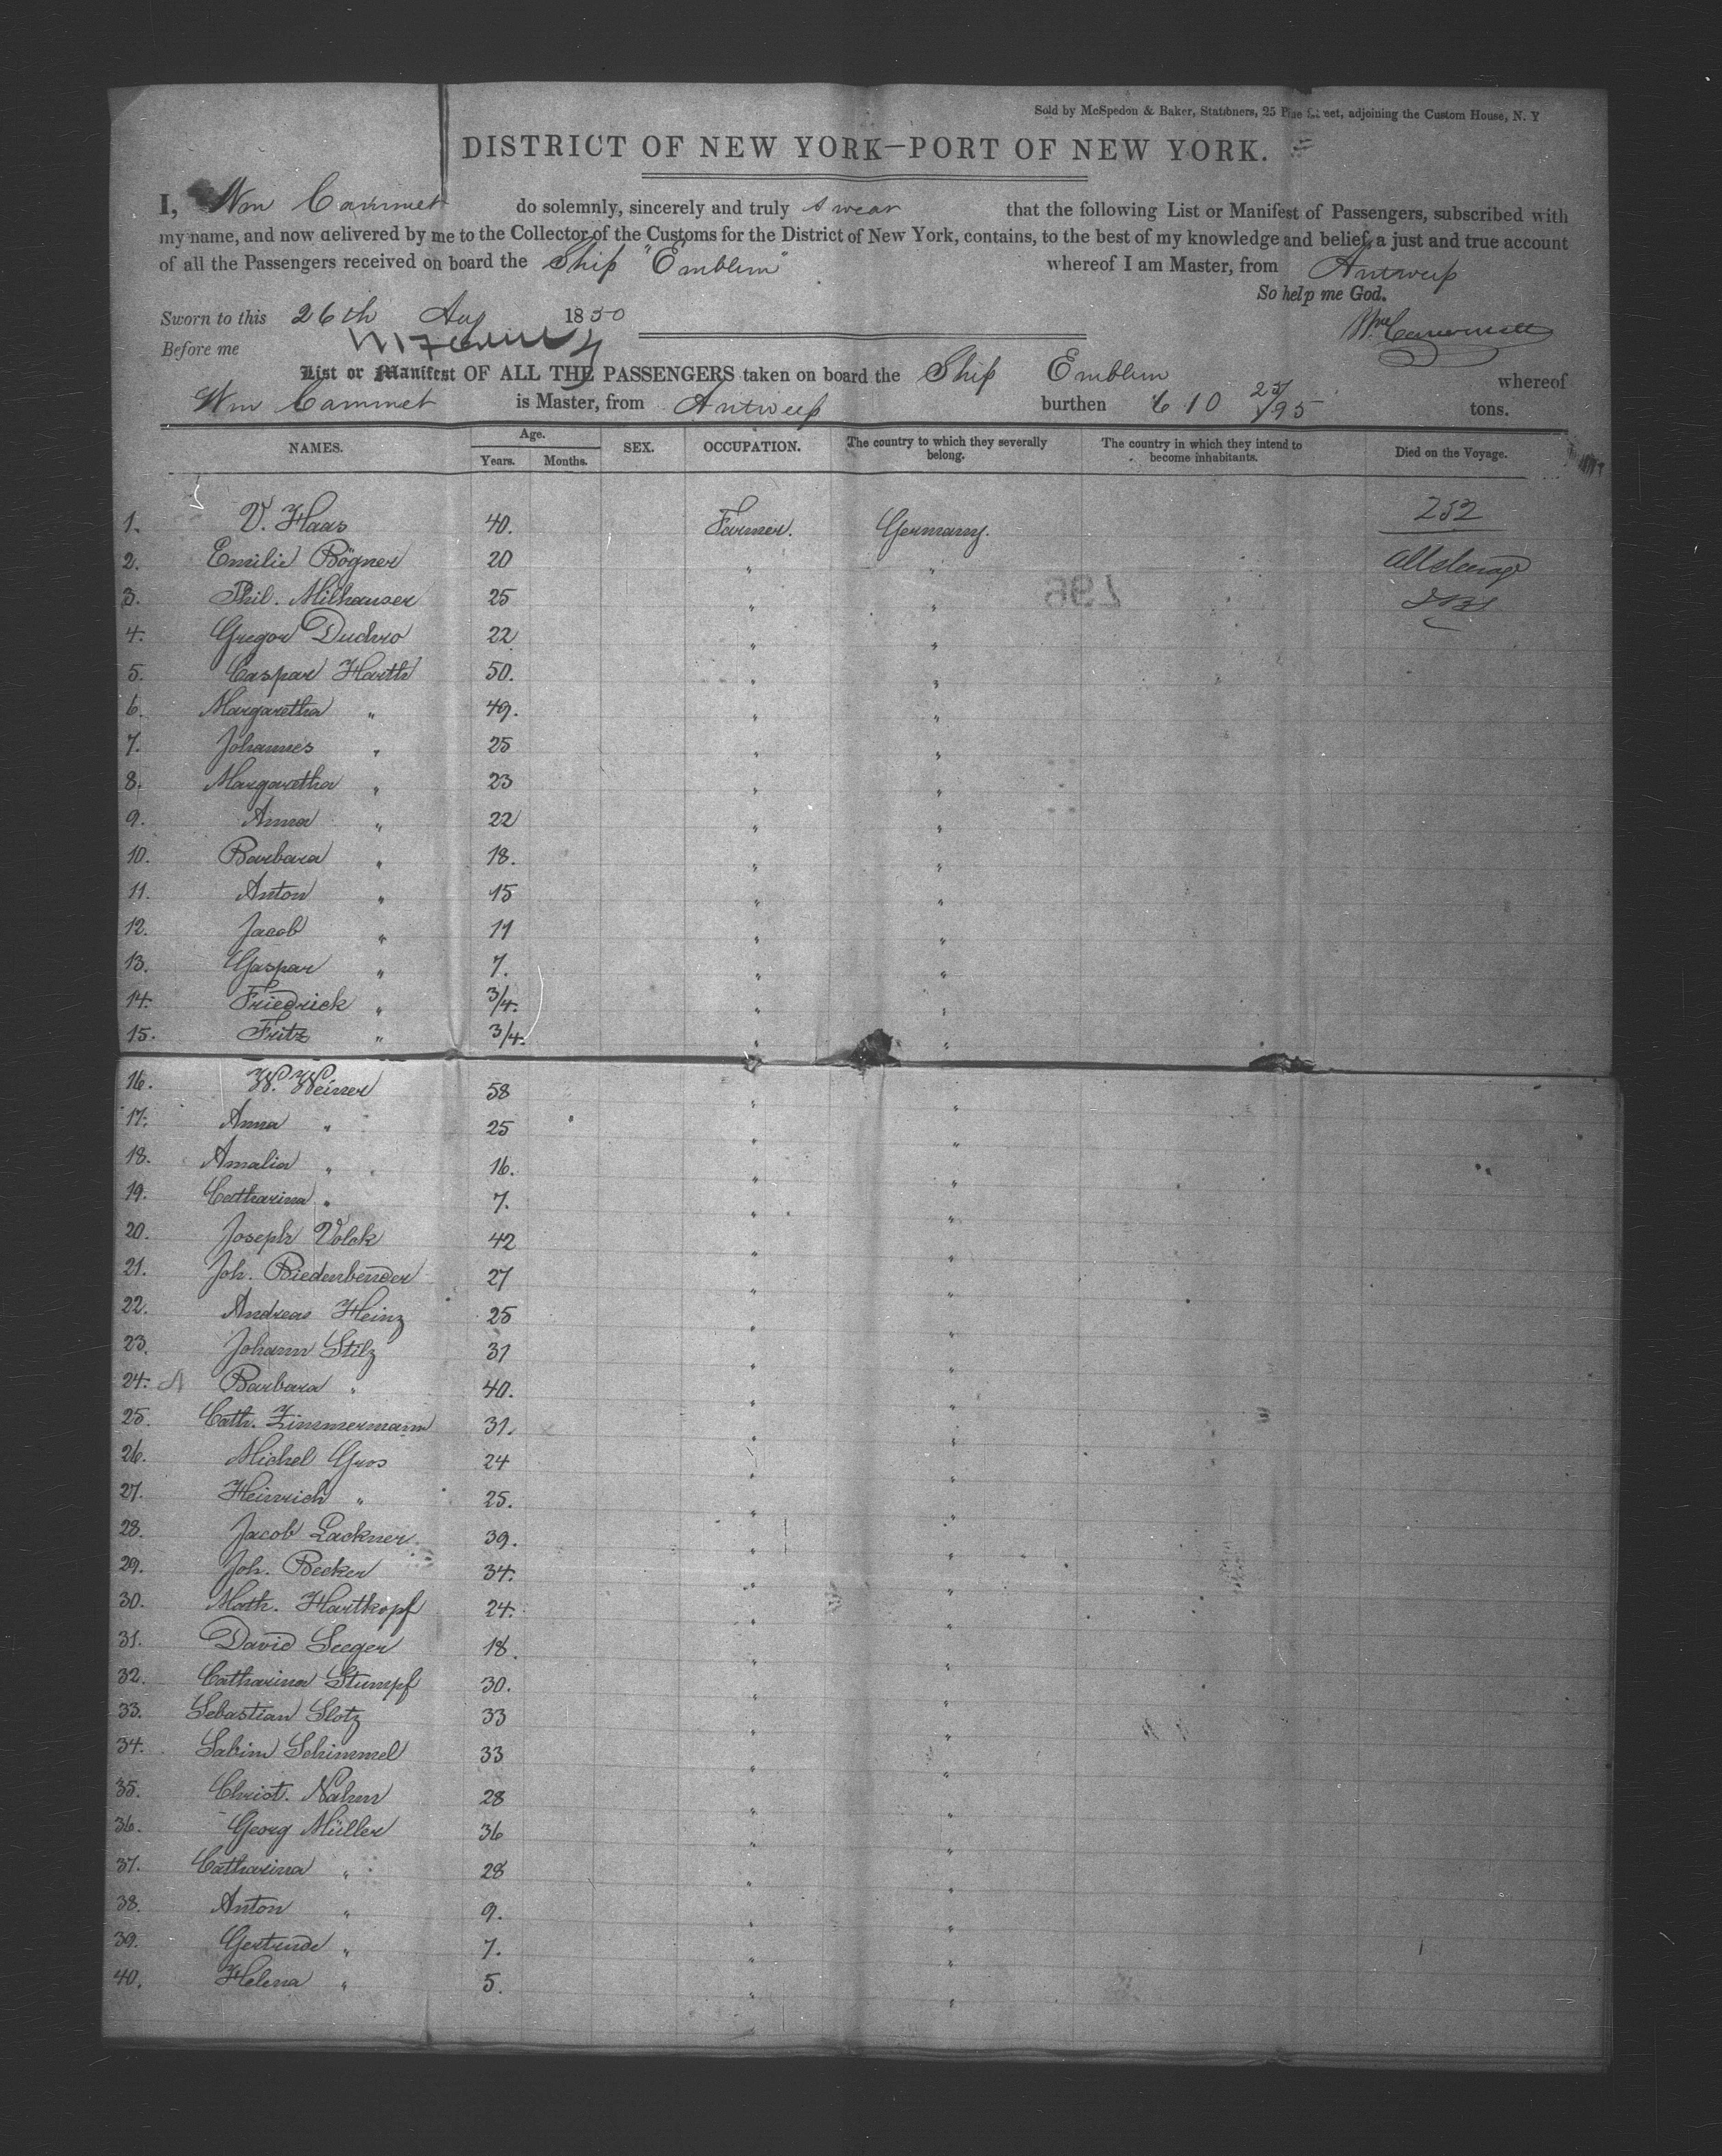 Sold by McSpedon & Baker, Stationers, 25 Pine Street, adjoining the Custom House, N. Y
DISTRICT OF NEW YORK—PORT OF NEW YORK.
I, Wm Cammet do solemnly, sincerely and truly swear that the following List or Manifest of Passengers, subscribed with
my name, and now delivered by me to the Collector of the Customs for the District of New York, contains, to the best of my knowledge and belief, a just and true account
of all the Passengers received on board the Ship "Emblem" whereof I am Master, from Antwerp
So help me God.
Sworn to this 26th Aug 1850
Before me
List or Manifest OF ALL THE PASSENGERS taken on board the Ship Emblem whereof
Wm Cammet is Master, from Antwerp burthen 610 25/95 tons.
NAMES. Age. Years. Months. SEX. OCCUPATION. The country to which they severally belong. The country in which they intend to become inhabitants. Died on the Voyage.
252
1. V. Haas 40. Farmer. Germany.
2. Emilie Bögner 20 " "
3. Phil. Milhauser 25 " "
4. Gregor Duchro 22 " "
5. Caspar Harth 50. " "
6. Margaretha " 49. " "
7. Johannes " 25 " "
8. Margaretha " 23 " "
9. Anna " 22 " "
10. Barbara " 18. " "
11. Anton " 15 " "
12. Jacob " 11 " "
13. Gaspar " 7. " "
14. Friedrick " 3/4. " "
15. Fritz " 3/4. " "
16. W. Weiner 58 " "
17. Anna " 25 " "
18. Amalia " 16. " "
19. Catharina " 7. " "
20. Joseph Volck 42 " "
21. Joh. Biedenbender 27 " "
22. Andreas Heinz 25 " "
23. Johann Stilz 31 " "
24. Barbara " 40. " "
25. Cath. Zimmermann 31. " "
26. Michel Gros 24 " "
27. Heinrich " 25. " "
28. Jacob Lackner 39. " "
29. Joh. Becker 34. " "
30. Math. Hartkopf 24. " "
31. David Seeger 18. " "
32. Catharina Stumpf 30. " "
33. Sebastian Slotz 33 " "
34. Sabim Schimmel 33 " "
35. Christ. Nahm 28 " "
36. Georg Müller 36 " "
37. Catharina " 28 " "
38. Anton " 9. " "
39. Gertrude " 7. " "
40. Helena " 5. " "